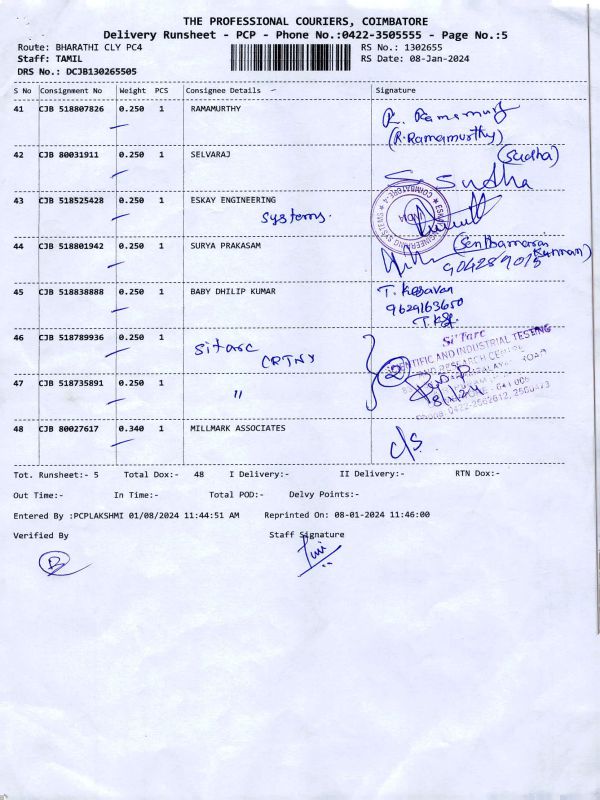 THE PROFESSIONAL COURIERS, COIMBATORE
Delivery Runsheet - PCP - Phone No.:0422-3505555 - Page No.:5
Route: BHARATHI CLY PC4 RS No.: 1302655
Staff: TAMIL RS Date: 08-Jan-2024
DRS No.: DCJB130265505
S No Consignment No Weight PCS Consignee Details Signature
41 CJB 518807826 0.250 1 RAMAMURTHY R. Ramamurthy
(R.Ramamurthy)
42 CJB 80031911 0.250 1 SELVARAJ (Sudha)
S. Sudha
43 CJB 518525428 0.250 1 ESKAY ENGINEERING
Systems.
44 CJB 518801942 0.250 1 SURYA PRAKASAM
45 CJB 518838888 0.250 1 BABY DHILIP KUMAR T. Kesavan
9629163650
46 CJB 518789936 0.250 1 Sitarc
Si'Tarc
SCIENTIFIC AND INDUSTRIAL TESTING
AND RESEARCH CENTRE
47 CJB 518735891 0.250 1 " 2
8/1/24
48 CJB 80027617 0.340 1 MILLMARK ASSOCIATES
Tot. Runsheet:- 5 Total Dox:- 48 I Delivery:- II Delivery:- RTN Dox:-
Out Time:- In Time:- Total POD:- Delvy Points:-
Entered By :PCPLAKSHMI 01/08/2024 11:44:51 AM Reprinted On: 08-01-2024 11:46:00
Verified By Staff Signature